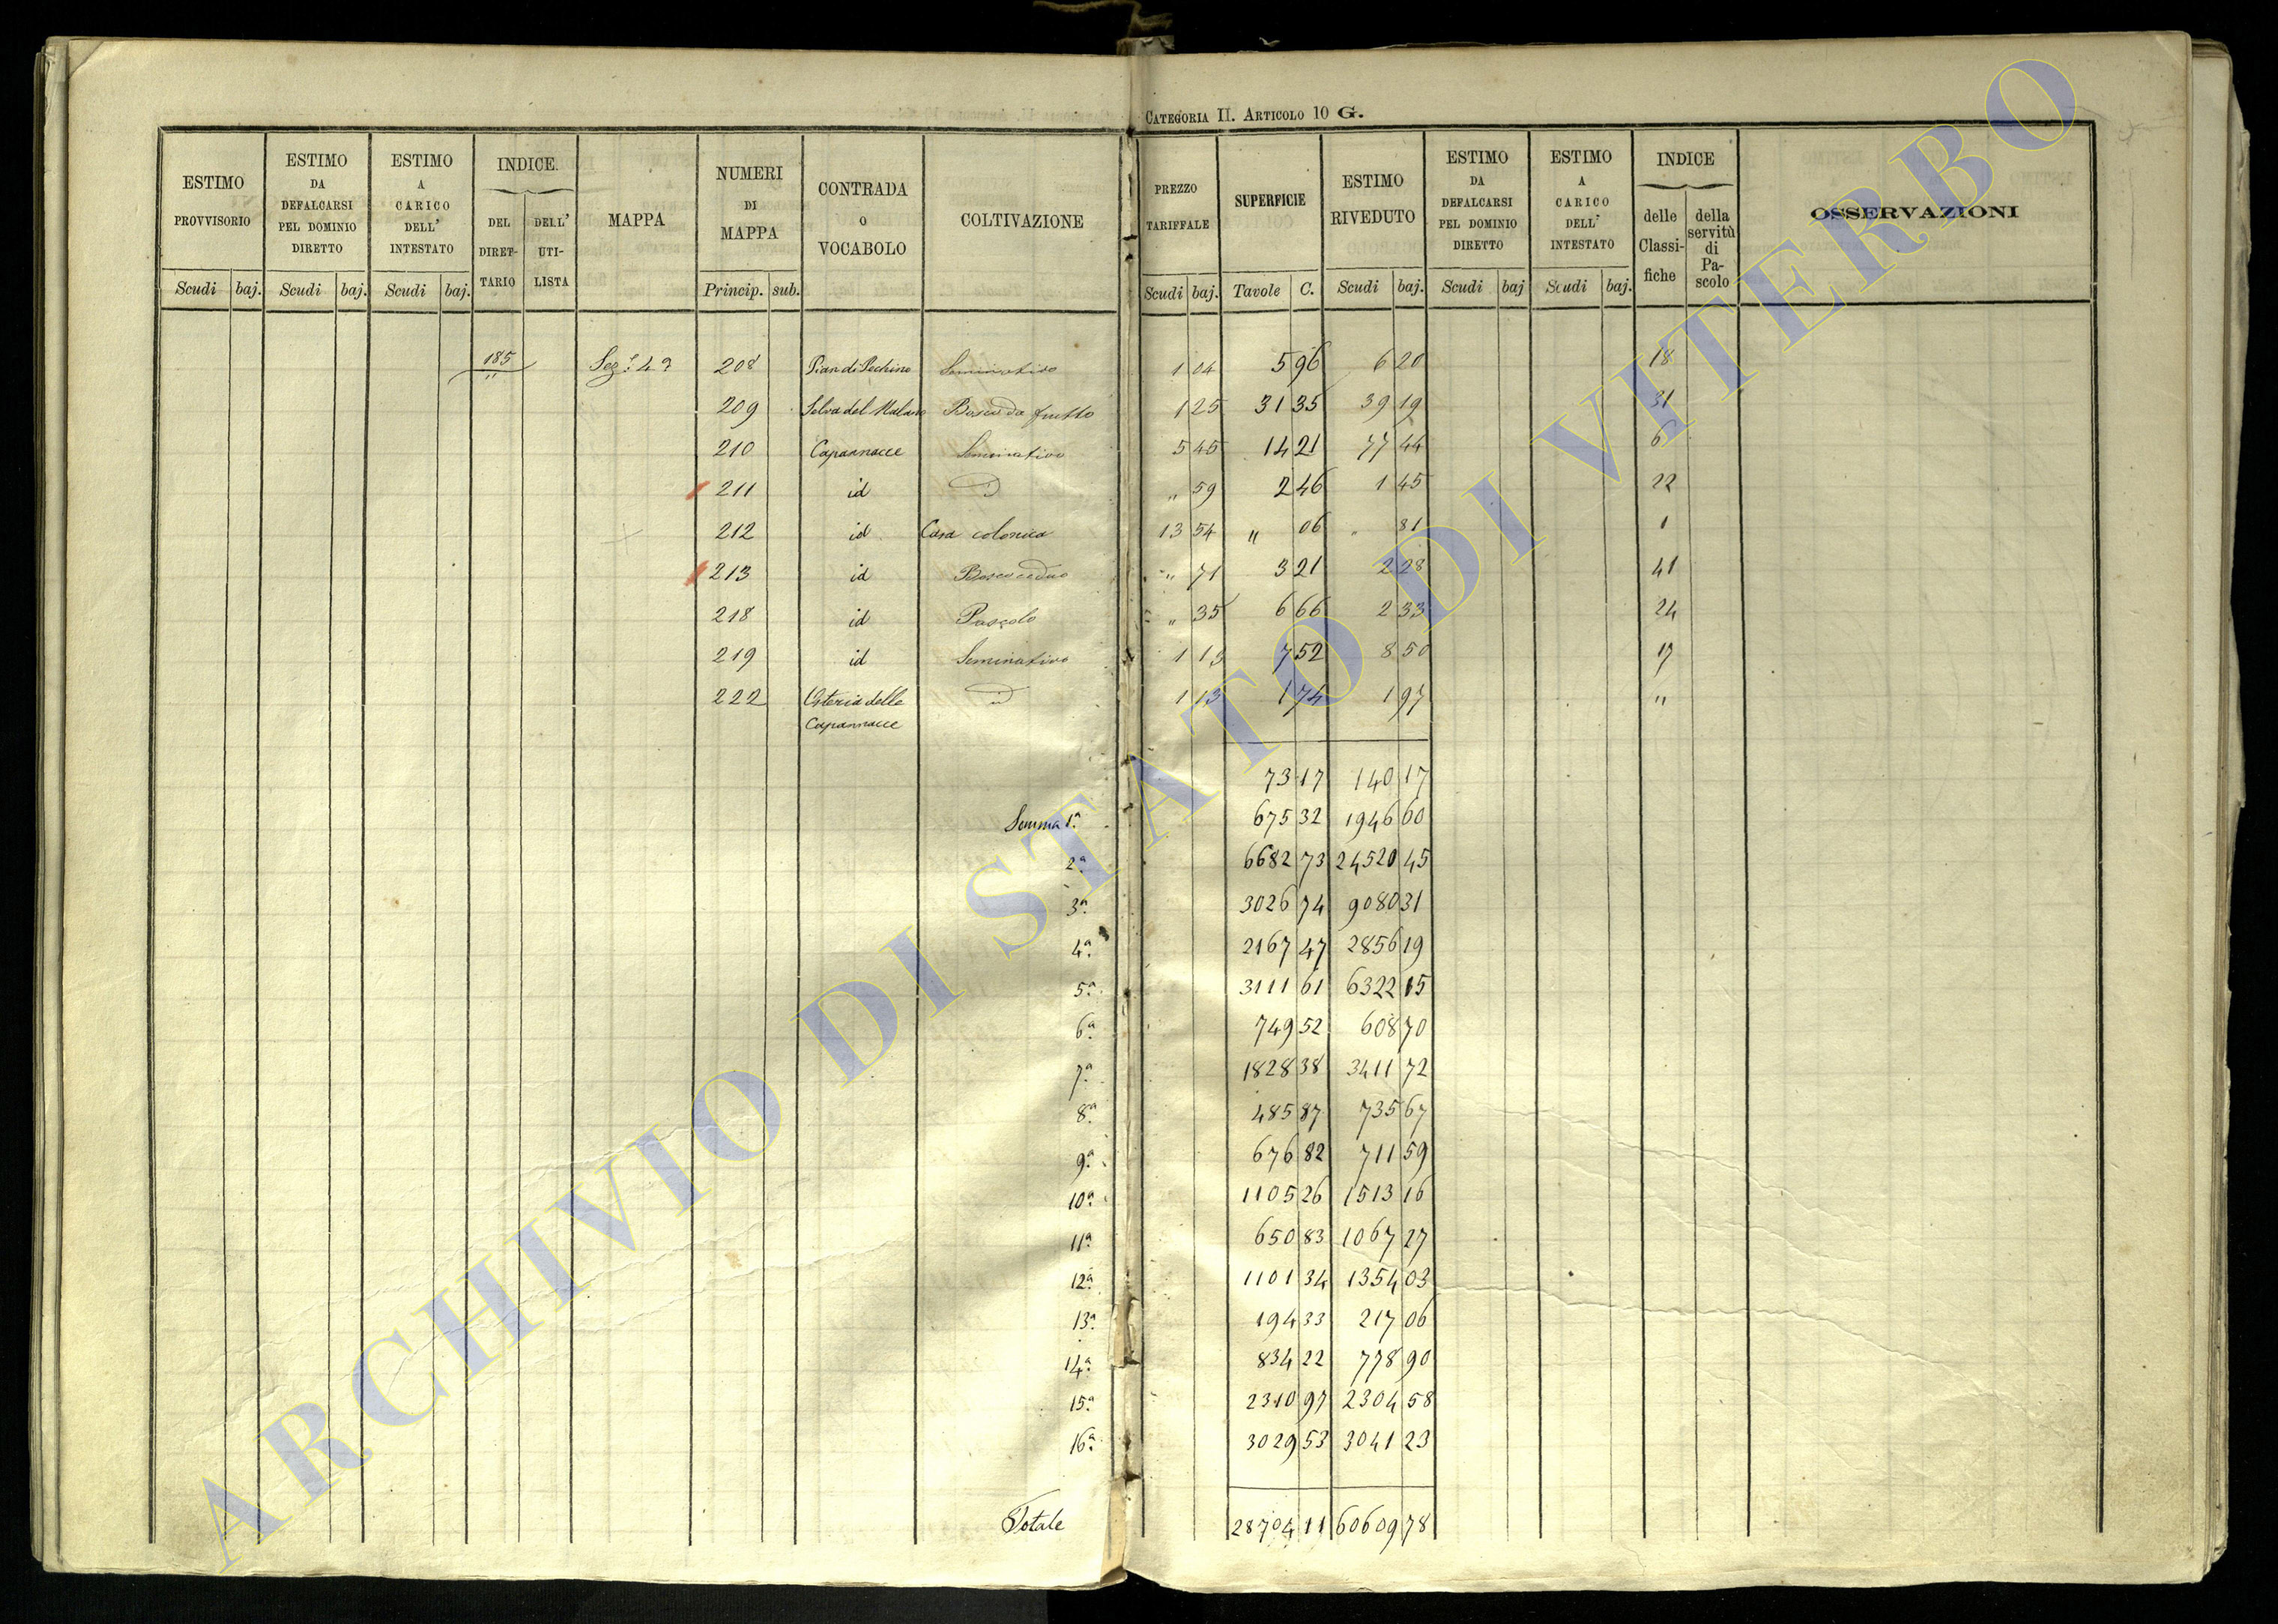 CATEGORIA II. ARTICOLO 10 G.
ESTIMO PROVVISORIO Scudi baj.
ESTIMO DA DEFALCARSI PEL DOMINIO DIRETTO Scudi baj.
ESTIMO A CARICO DELL' INTESTATO Scudi baj.
INDICE. DEL DIRET-TARIO DELL' UTI-LISTA
MAPPA
NUMERI DI MAPPA Princip. sub.
CONTRADA O VOCABOLO
COLTIVAZIONE
PREZZO TARIFFALE Scudi baj.
SUPERFICIE Tavole C.
ESTIMO RIVEDUTO Scudi baj.
ESTIMO DA DEFALCARSI PEL DOMINIO DIRETTO Scudi baj
ESTIMO A CARICO DELL' INTESTATO Scudi baj.
INDICE delle Classi-fiche della servitù di Pa-scolo
OSSERVAZIONI
185 " Sez.e 4a 208 Pian di Pechino Seminativo 1 04 5 96 6 20 18
209 Selva del Malano Bosco da frutto 1 25 31 35 39 19 31
210 Capannacce Seminativo 5 45 14 21 77 44 6
211 id D " 59 2 46 1 45 22
212 id Casa colonica 13 54 " 06 " 81 1
213 id Bosco ceduo " 71 3 21 2 28 41
218 id Pascolo " 35 6 66 2 33 24
219 id Seminativo 1 13 7 52 8 50 17
222 Osteria delle D 1 13 1 74 1 97 "
Capannacce
73 17 140 17
Somma 1a. 675 32 1946 60
2a. 6682 73 24520 45
3a. 3026 74 9080 31
4a. 2167 47 2856 19
5a. 3111 61 6322 15
6a. 749 52 608 70
7a. 1828 38 3411 72
8a. 485 87 735 67
9a. 676 82 711 59
10a. 1105 26 1513 16
11a. 650 83 1067 27
12a. 1101 34 1354 03
13a. 194 33 217 06
14a. 834 22 778 90
15a. 2310 97 2304 58
16a. 3029 53 3041 23
Totale 28704 11 60609 78
ARCHIVIO DI STATO DI VITERBO